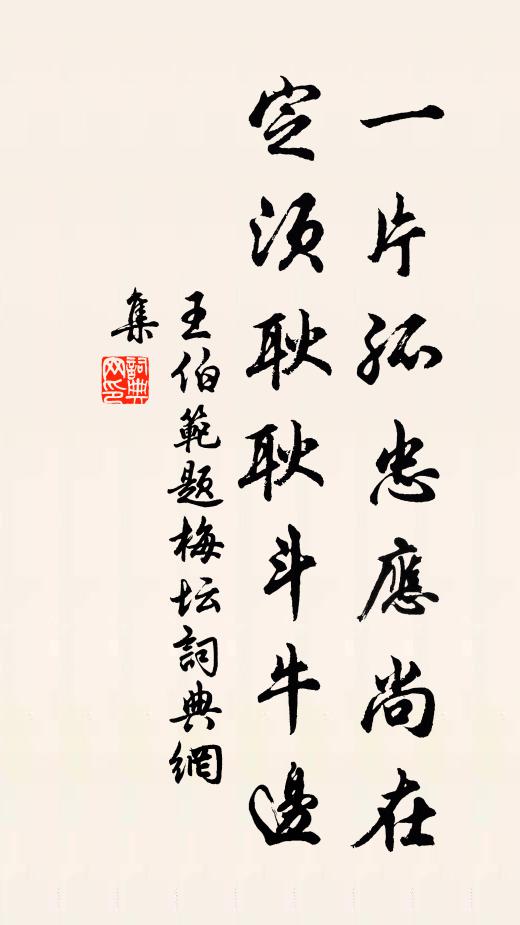 一片孤忠應尚在
定須耿耿斗牛邊
王伯範題梅坛詞典網
集
詞典
网印